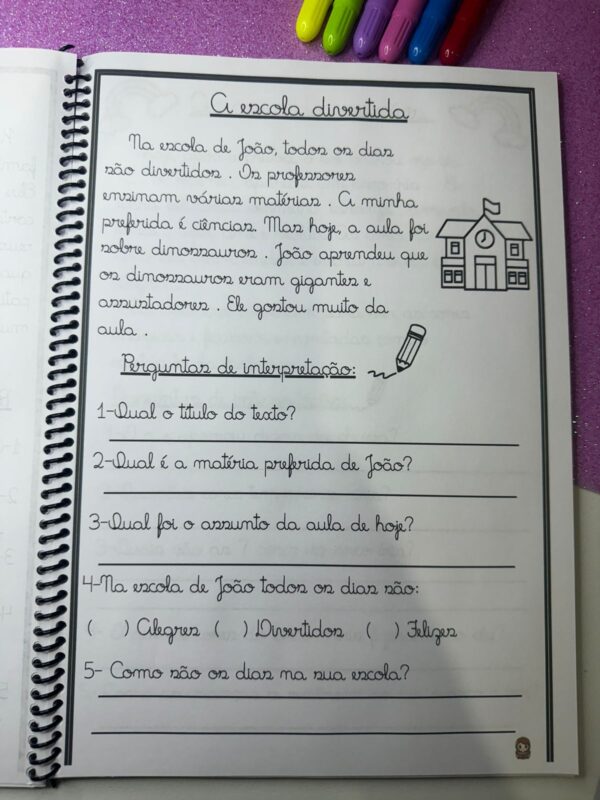 A escola divertida
Na escola de João, todos os dias
são divertidos . Os professores
ensinam várias matérias . A minha
preferida é ciências. Mas hoje, a aula foi
sobre dinossauros . João aprendeu que
os dinossauros eram gigantes e
assustadores . Ele gostou muito da
aula .
Perguntas de interpretação:
1-Qual o título do texto?
2-Qual é a matéria preferida de João?
3-Qual foi o assunto da aula de hoje?
4-Na escola de João todos os dias são:
( ) Alegres ( ) Divertidos ( ) Felizes
5- Como são os dias na sua escola?